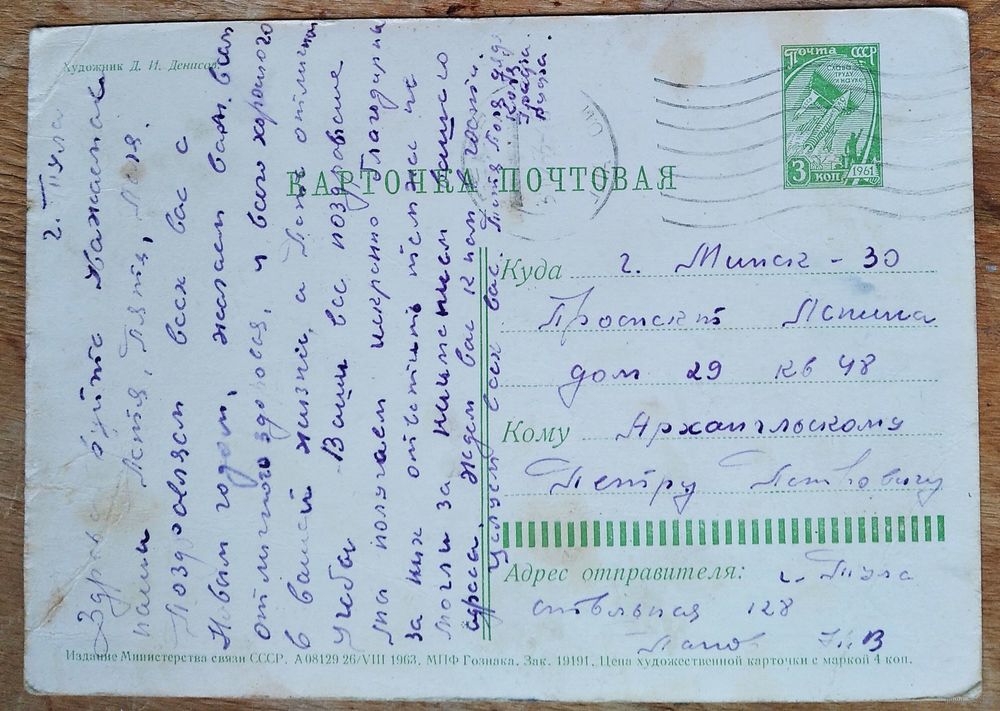 Художник Д. И. Денисов
Почта СССР
СЛАВА
ТРУДУ
И НАУКЕ
3 коп.
1961
КАРТОЧКА ПОЧТОВАЯ
г. Тула
Здравствуйте Уважаемые
наши Петя, Леля.
Поздровляем всех вас с
Новым годом, желаем вам
отличного здоровья, и всего хорошего
в вашей жизни, а Пете отличной
учебы Ваши все поздровления
мы получаем искренно благодарны
за них ответить тем же не
могли за неимением Вашего
адреса. Ждем вас к нам в гости.
Целуем всех вас. Тетя Поля дядя
Куда г. Минск - 30
Проспект Ленина
дом 29 кв 48
Кому Архангельскому
Петру Петровичу
Адрес отправителя: г. Тула
128
Издание Министерства связи СССР. А 08129 26/VIII 1963. МПФ Гознака. Зак. 19191. Цена художественной карточки с маркой 4 коп.